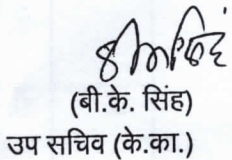 (बी.के. सिंह)
उप सचिव (के.का.)